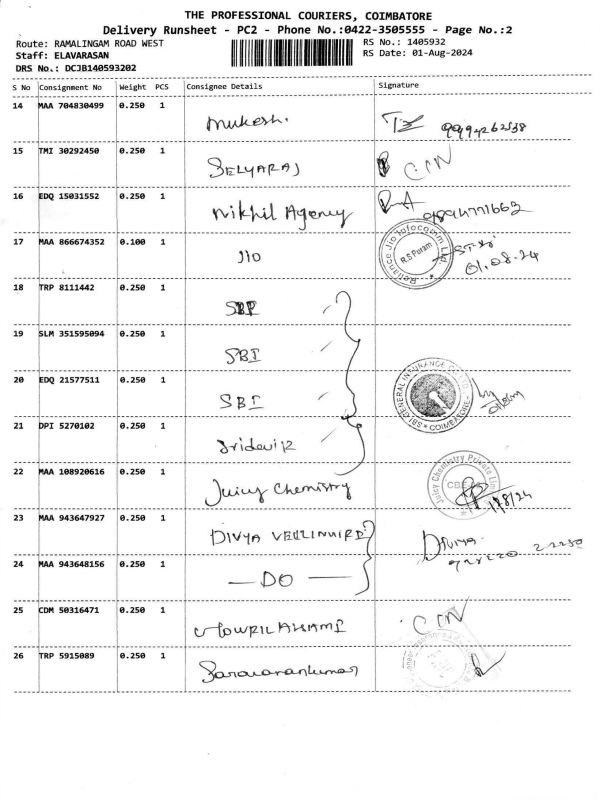 THE PROFESSIONAL COURIERS, COIMBATORE
Delivery Runsheet - PC2 - Phone No.:0422-3505555 - Page No.:2
Route: RAMALINGAM ROAD WEST RS No.: 1405932
Staff: ELAVARASAN RS Date: 01-Aug-2024
DRS No.: DCJB140593202
S No Consignment No Weight PCS Consignee Details Signature
14 MAA 704830499 0.250 1 Mukesh.
15 TMI 30292450 0.250 1 SELVARAJ
16 EDQ 15031552 0.250 1 Nikhil Agency
17 MAA 866674352 0.100 1 JIO Reliance Jio Infocomm Ltd. R.S Puram 01.08.24
18 TRP 8111442 0.250 1 SBI
19 SLM 351595094 0.250 1 SBI
20 EDQ 21577511 0.250 1 SBI SBI GENERAL INSURANCE CO LTD COIMBATORE
21 DPI 5270102 0.250 1 Sridevi
22 MAA 108920616 0.250 1 Juicy Chemistry Juicy Chemistry Private Limited 1/8/24
23 MAA 943647927 0.250 1 DIVYA Divya
24 MAA 943648156 0.250 1 DO
25 CDM 50316471 0.250 1
26 TRP 5915089 0.250 1 Saravanankumar